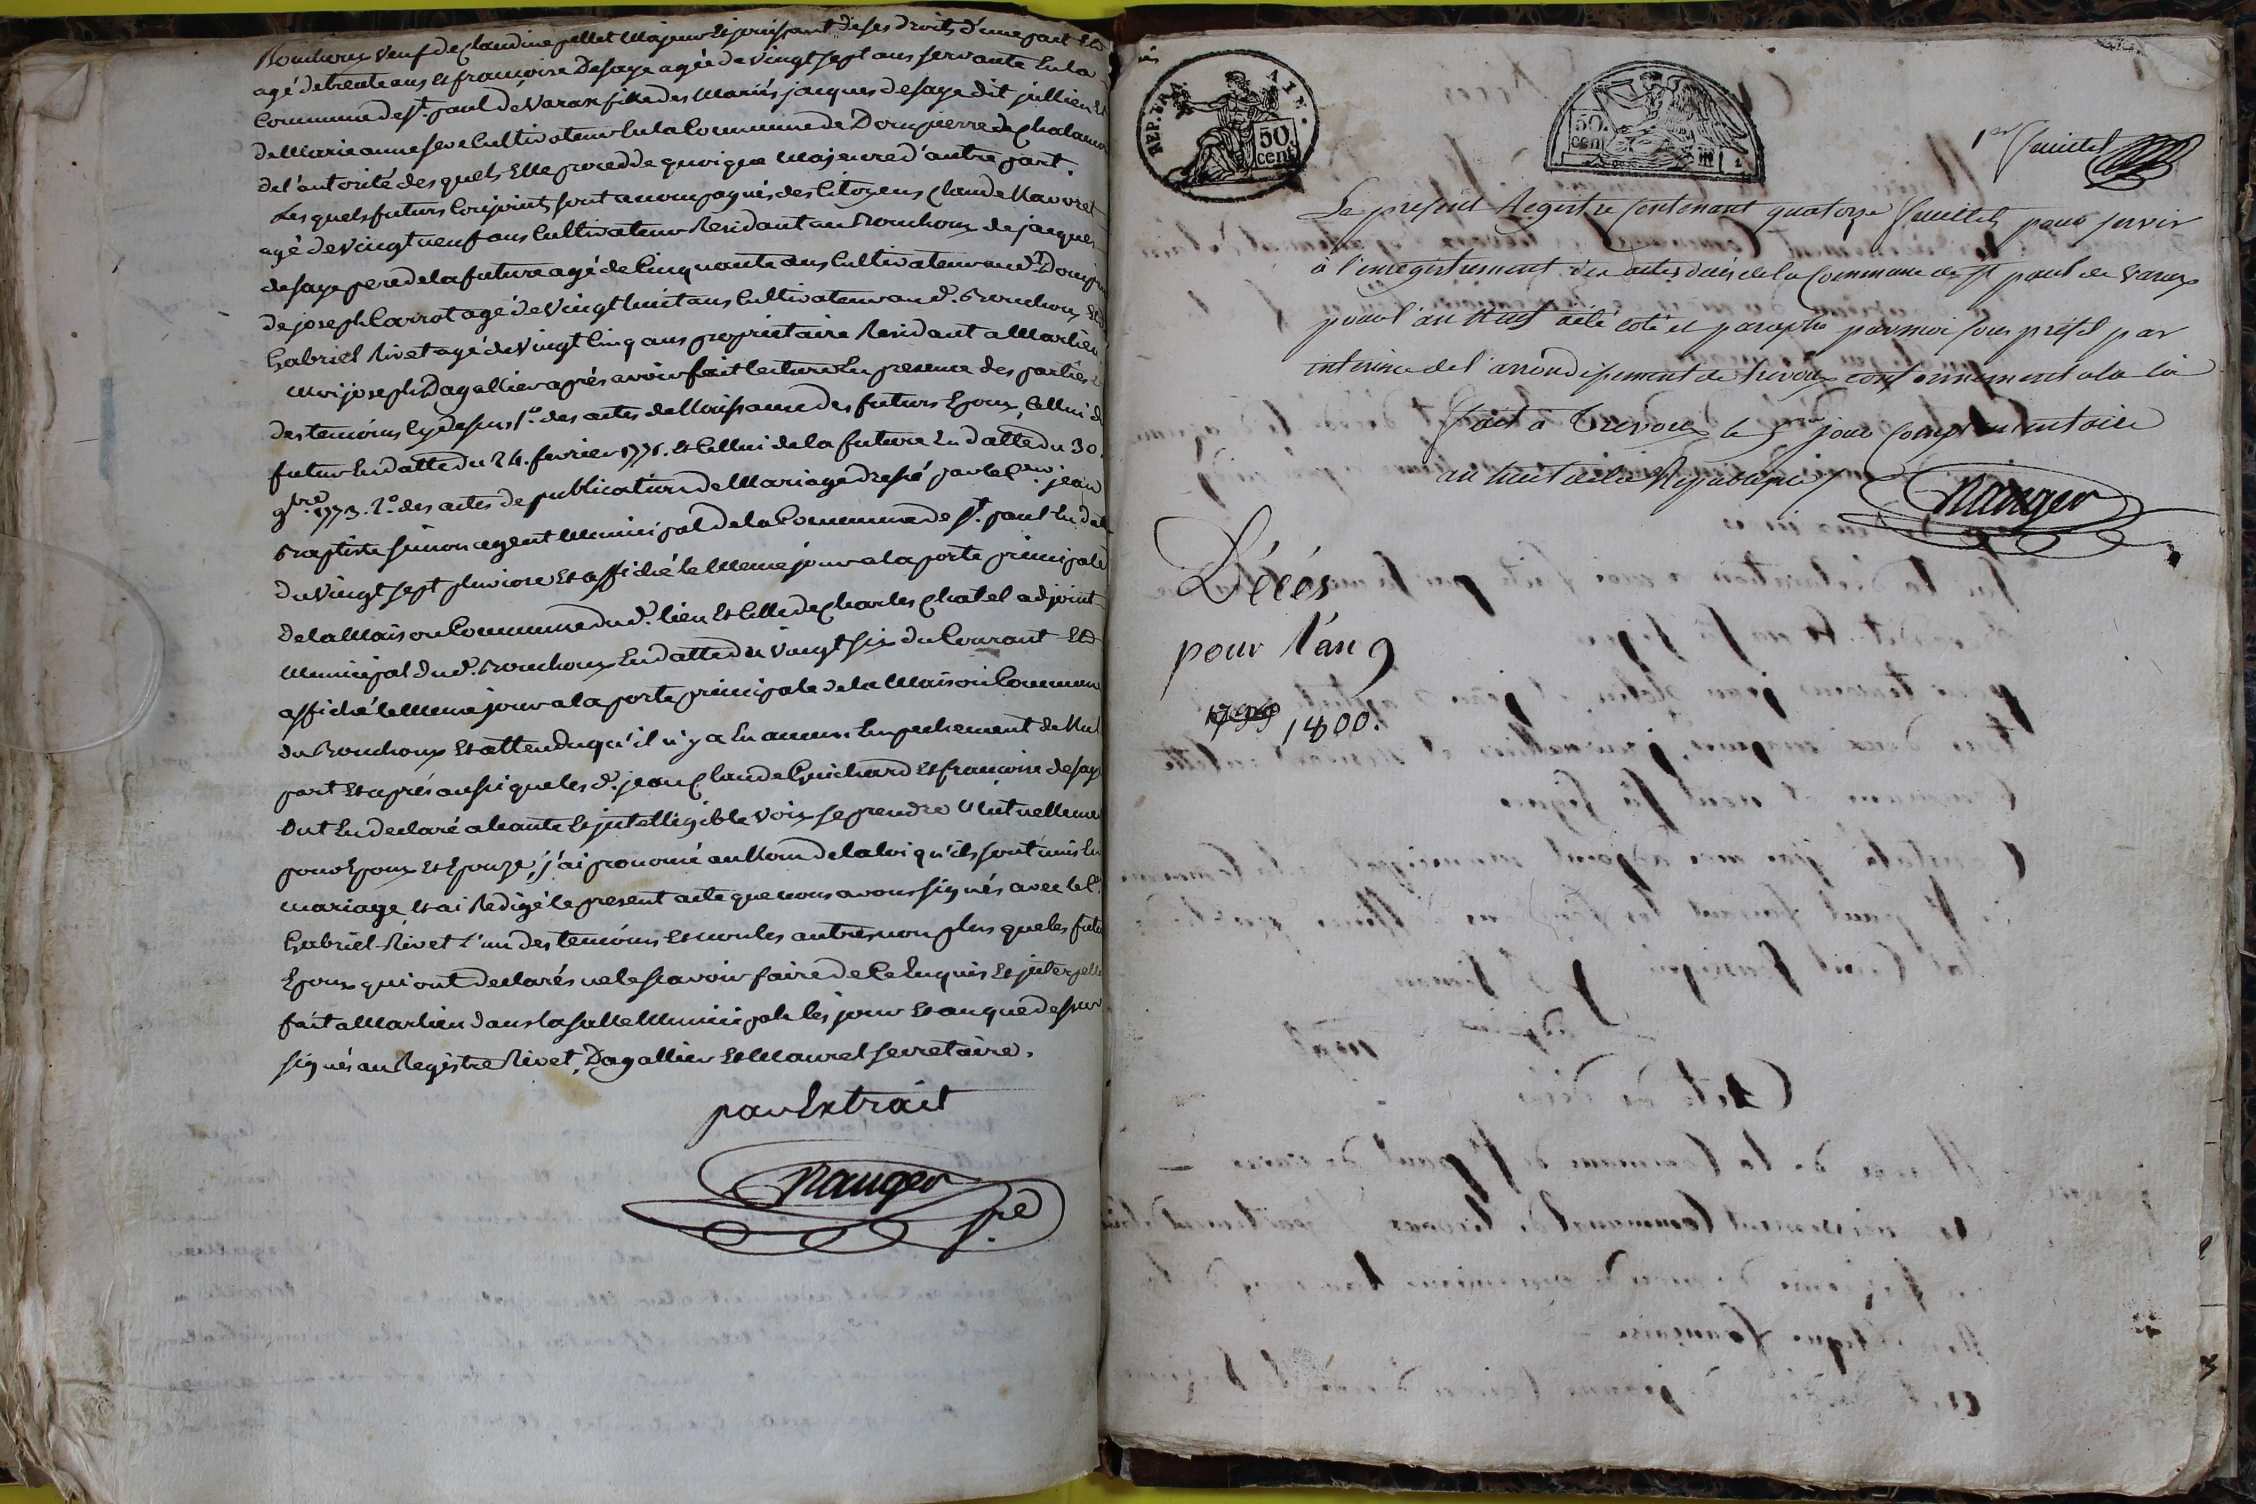 Bouchoux veuf de Claudine pellet Majeur et jouissant de ses droits d'une part et
agé de trente ans et françoise Desaye agée de vingt sept ans servante En la
Commune de St. paul de Varax fille des Mariés jacques desaye dit jullien et
de Marie anne Cultivateur En la Commune de Dompierre de Chalamon
de l'autorité des quels Elle procedde quoique Majeure d'autre part.
Les quels futurs Conjoints sont accompagnés des Citoyens Claude Navoret
agé de vingt neuf ans Cultivateur Residant au Bouchoux de jacques
desaye pere de la future agé de Cinquante ans Cultivateur aud. Dompierre
de joseph Carrot agé de vingt huit ans Cultivateur aud. Bouchoux et
Gabriel Rivet agé de vingt Cinq ans proprietaire Residant a Marlieu
Moi joseph Dagallier aprés avoir fait lecture En presence des parties
des temoins Cy dessus 1o. des actes de Naissance des futurs Epoux, Cellui du
futur En datte du 24. fevrier 1771. et Cellui de la future En datte du 30.
9bre. 1773. 2o. des actes de publication de Mariage dressé par le Cen. jean
Baptiste simon agent Municipal de la Commune de St. paul En date
du vingt sept pluviose et affiché le Meme jour a la porte principale
de la Maison Commune dud. lieu et Celle de Charles Chatel adjoint
Municipal dud. Bouchoux En datte du vingt six du Courant et
affiché le Meme jour a la porte principale de la Maison Commune
du Bouchoux et attendu qu'il n'y a Eu aucun Empechement de Nul
part et aprés aussi que les d. jean Claude Guichard et françoise desaye
Ont Eu declaré a haute et intelligible voix se prendre Mutuellement
pour Epoux et Epouze, j'ai prononcé au Nom de la loi qu'ils sont unis En
mariage et ai Redigé le present acte que nous avons signés avec le C.
Gabriel Rivet l'un des temoins et non les autres non plus que les futurs
Epoux qui ont declarés ne le sçavoir faire de Ce Enquis et interpellé
fait a Marlieu dans la salle Municipale les jour et an que dessus
signés au Registre Rivet, Dagallier et Maurel secretaire.
par Extrait
Mauger
sre
REP. FRA. 50 cent
50. cen
1er feuillet
Le présent Registre contenant quatorze feuillets pour servir
à l'enregistrement des actes de décès de la Commune de St paul de Varax
pour l'an neuf a été coté et paraphé par moi sous préfet par
interim de l'arrondissement de Trevoux conformement a la loi
fait a Trevoux le 5me jour Complementaire
an huit de la République
Mauger
Décés
pour l'an 9
1799 1800.